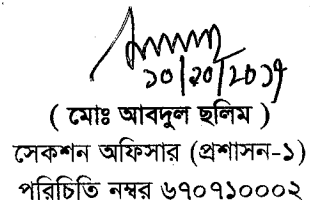 ১০/১০/২০১৭
( মোঃ আবদুল ছলিম )
সেকশন অফিসার (প্রশাসন-১)
পরিচিতি নম্বর ৬৭০৭১০০০২